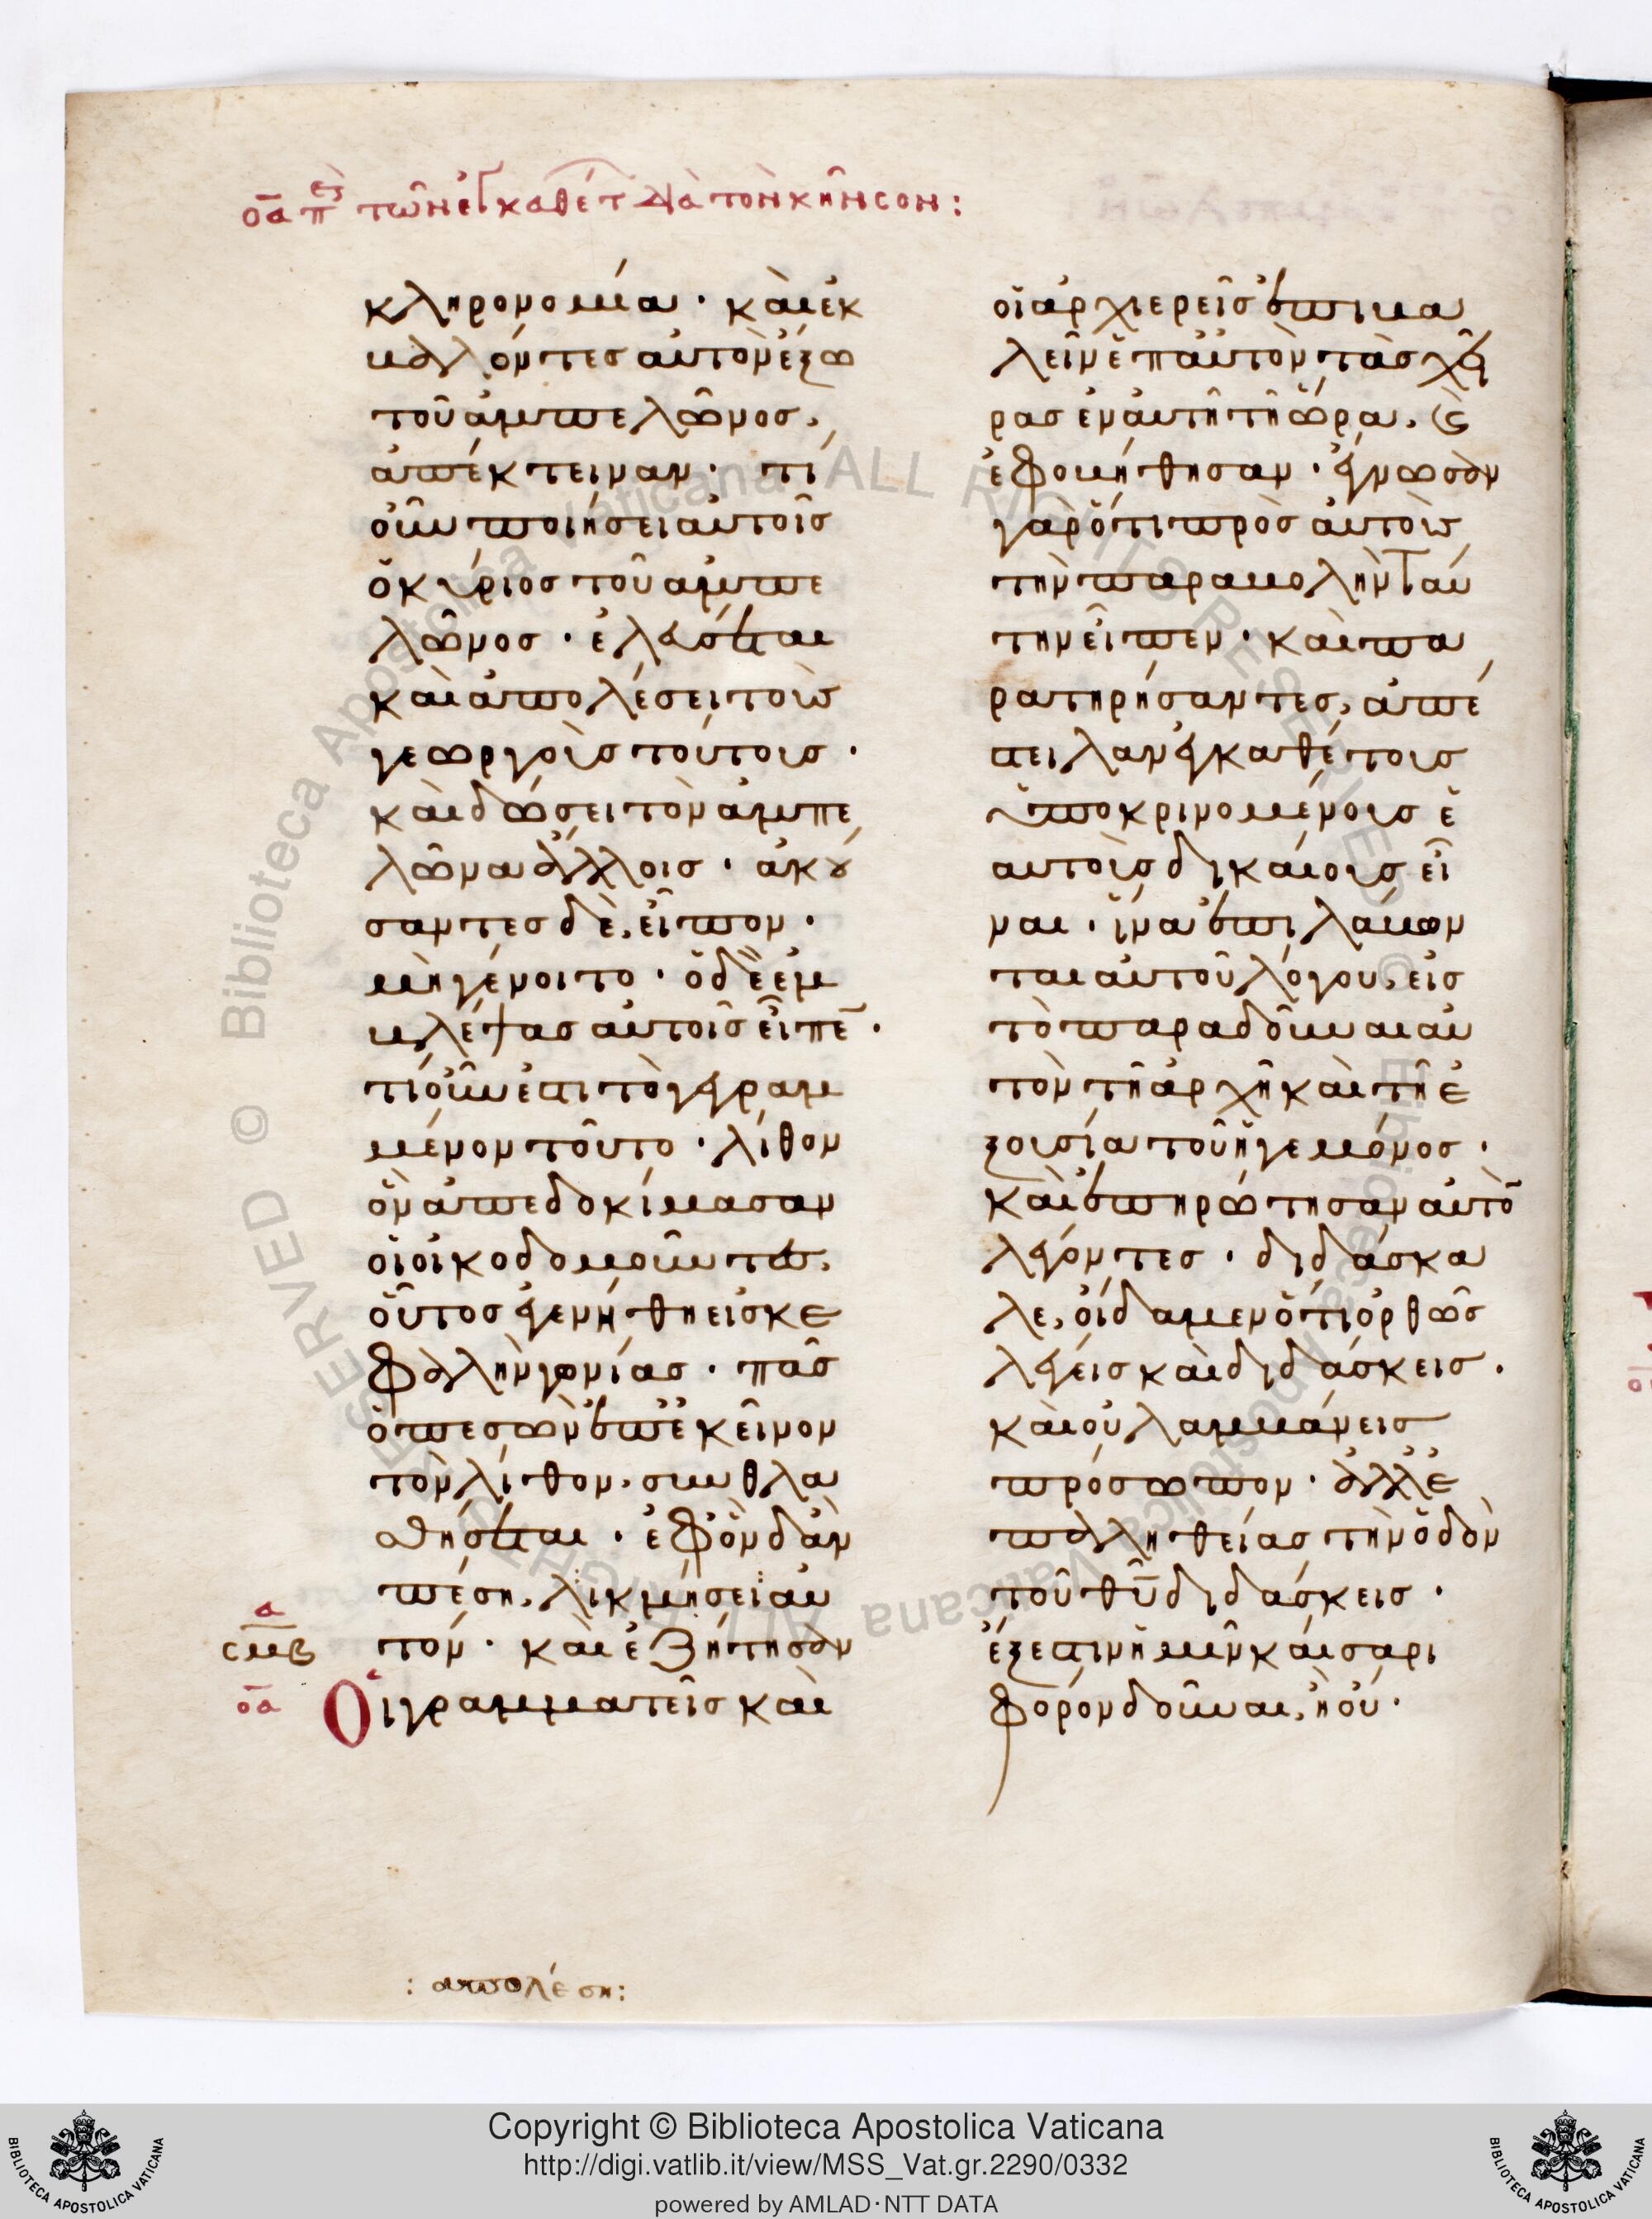 οα περὶ τῶν ἐγκαθέτ διὰ τὸν κῆνσον:
κληρονομία· καὶ ἐκ
βαλόντες αὐτὸν ἔξω
τοῦ ἀμπελῶνος,
ἀπέκτειναν· τί
οὖν ποιήσει αὐτοῖς
ὁ κύριος τοῦ ἀμπε
λῶνος· ἐλεύσεται
καὶ ἀπολέσει τοὺς
γεωργοὺς τούτους·
καὶ δώσει τὸν ἀμπε
λῶνα ἄλλοις· ἀκού
σαντες δὲ, εἶπον·
μὴ γένοιτο· ὁ δὲ ἐμ
βλέψας αὐτοῖς εἶπε̄·
τί οὖν ἐστι τὸ γεγραμ
μένον τοῦτο· λίθον
ὃν ἀπεδοκίμασαν
οἱ οἰκοδομοῦντες,
οὗτος ἐγενήθη εἰς κε
φαλὴν γωνίας· πᾶς
ὁ πεσὼν ἐπ' ἐκεῖνον
τὸν λίθον, συνθλα
σθήσεται· ἐφ' ὃν δ' ἂν
πέσῃ, λικμήσει αὐ
τόν· καὶ ἐζήτησαν
α
σμβ
οα
Οἱ γραμματεῖς καὶ
οἱ ἀρχιερεῖς ἐπιβα
λεῖν ἐπ' αὐτὸν τὰς χεῖ
ρας ἐν αὐτῇ τῇ ὥρα, ϗ
ἐφοβήθησαν· ἔγνωσαν
γὰρ ὅτι πρὸς αὐτοὺς
τὴν παραβολὴν ταύ
την εἶπεν· καὶ πα
ρατηρήσαντες, ἀπέ
στειλαν ἐγκαθέτους
ὑποκρινομένους ἑ
αυτοὺς δικαίους εἶ
ναι· ἵνα ἐπιλάβων
ται αὐτοῦ λόγου, εἰς
τὸ παραδοῦναι αὐ
τὸν τῇ ἀρχῇ καὶ τῇ ἐ
ξουσία τοῦ ἡγεμόνος·
καὶ ἐπηρώτησαν αὐτὸ̄
λέγοντες· διδάσκα
λε, οἴδαμεν ὅτι ὀρθῶς
λέγεις καὶ διδάσκεις.
καὶ οὐ λαμβάνεις
πρόσωπον· ἀλλ' ἐ
π' ἀληθείας τὴν ὁδὸν
τοῦ θῡ διδάσκεις·
ἔξεστιν ἡμῖν καίσαρι
φόρον δοῦναι, ἢ οὔ·
: ἀπολέση:
Copyright © Biblioteca Apostolica Vaticana
http://digi.vatlib.it/view/MSS_Vat.gr.2290/0332
powered by AMLAD·NTT DATA
BIBLIOTECA APOSTOLICA VATICANA
BIBLIOTECA APOSTOLICA VATICANA